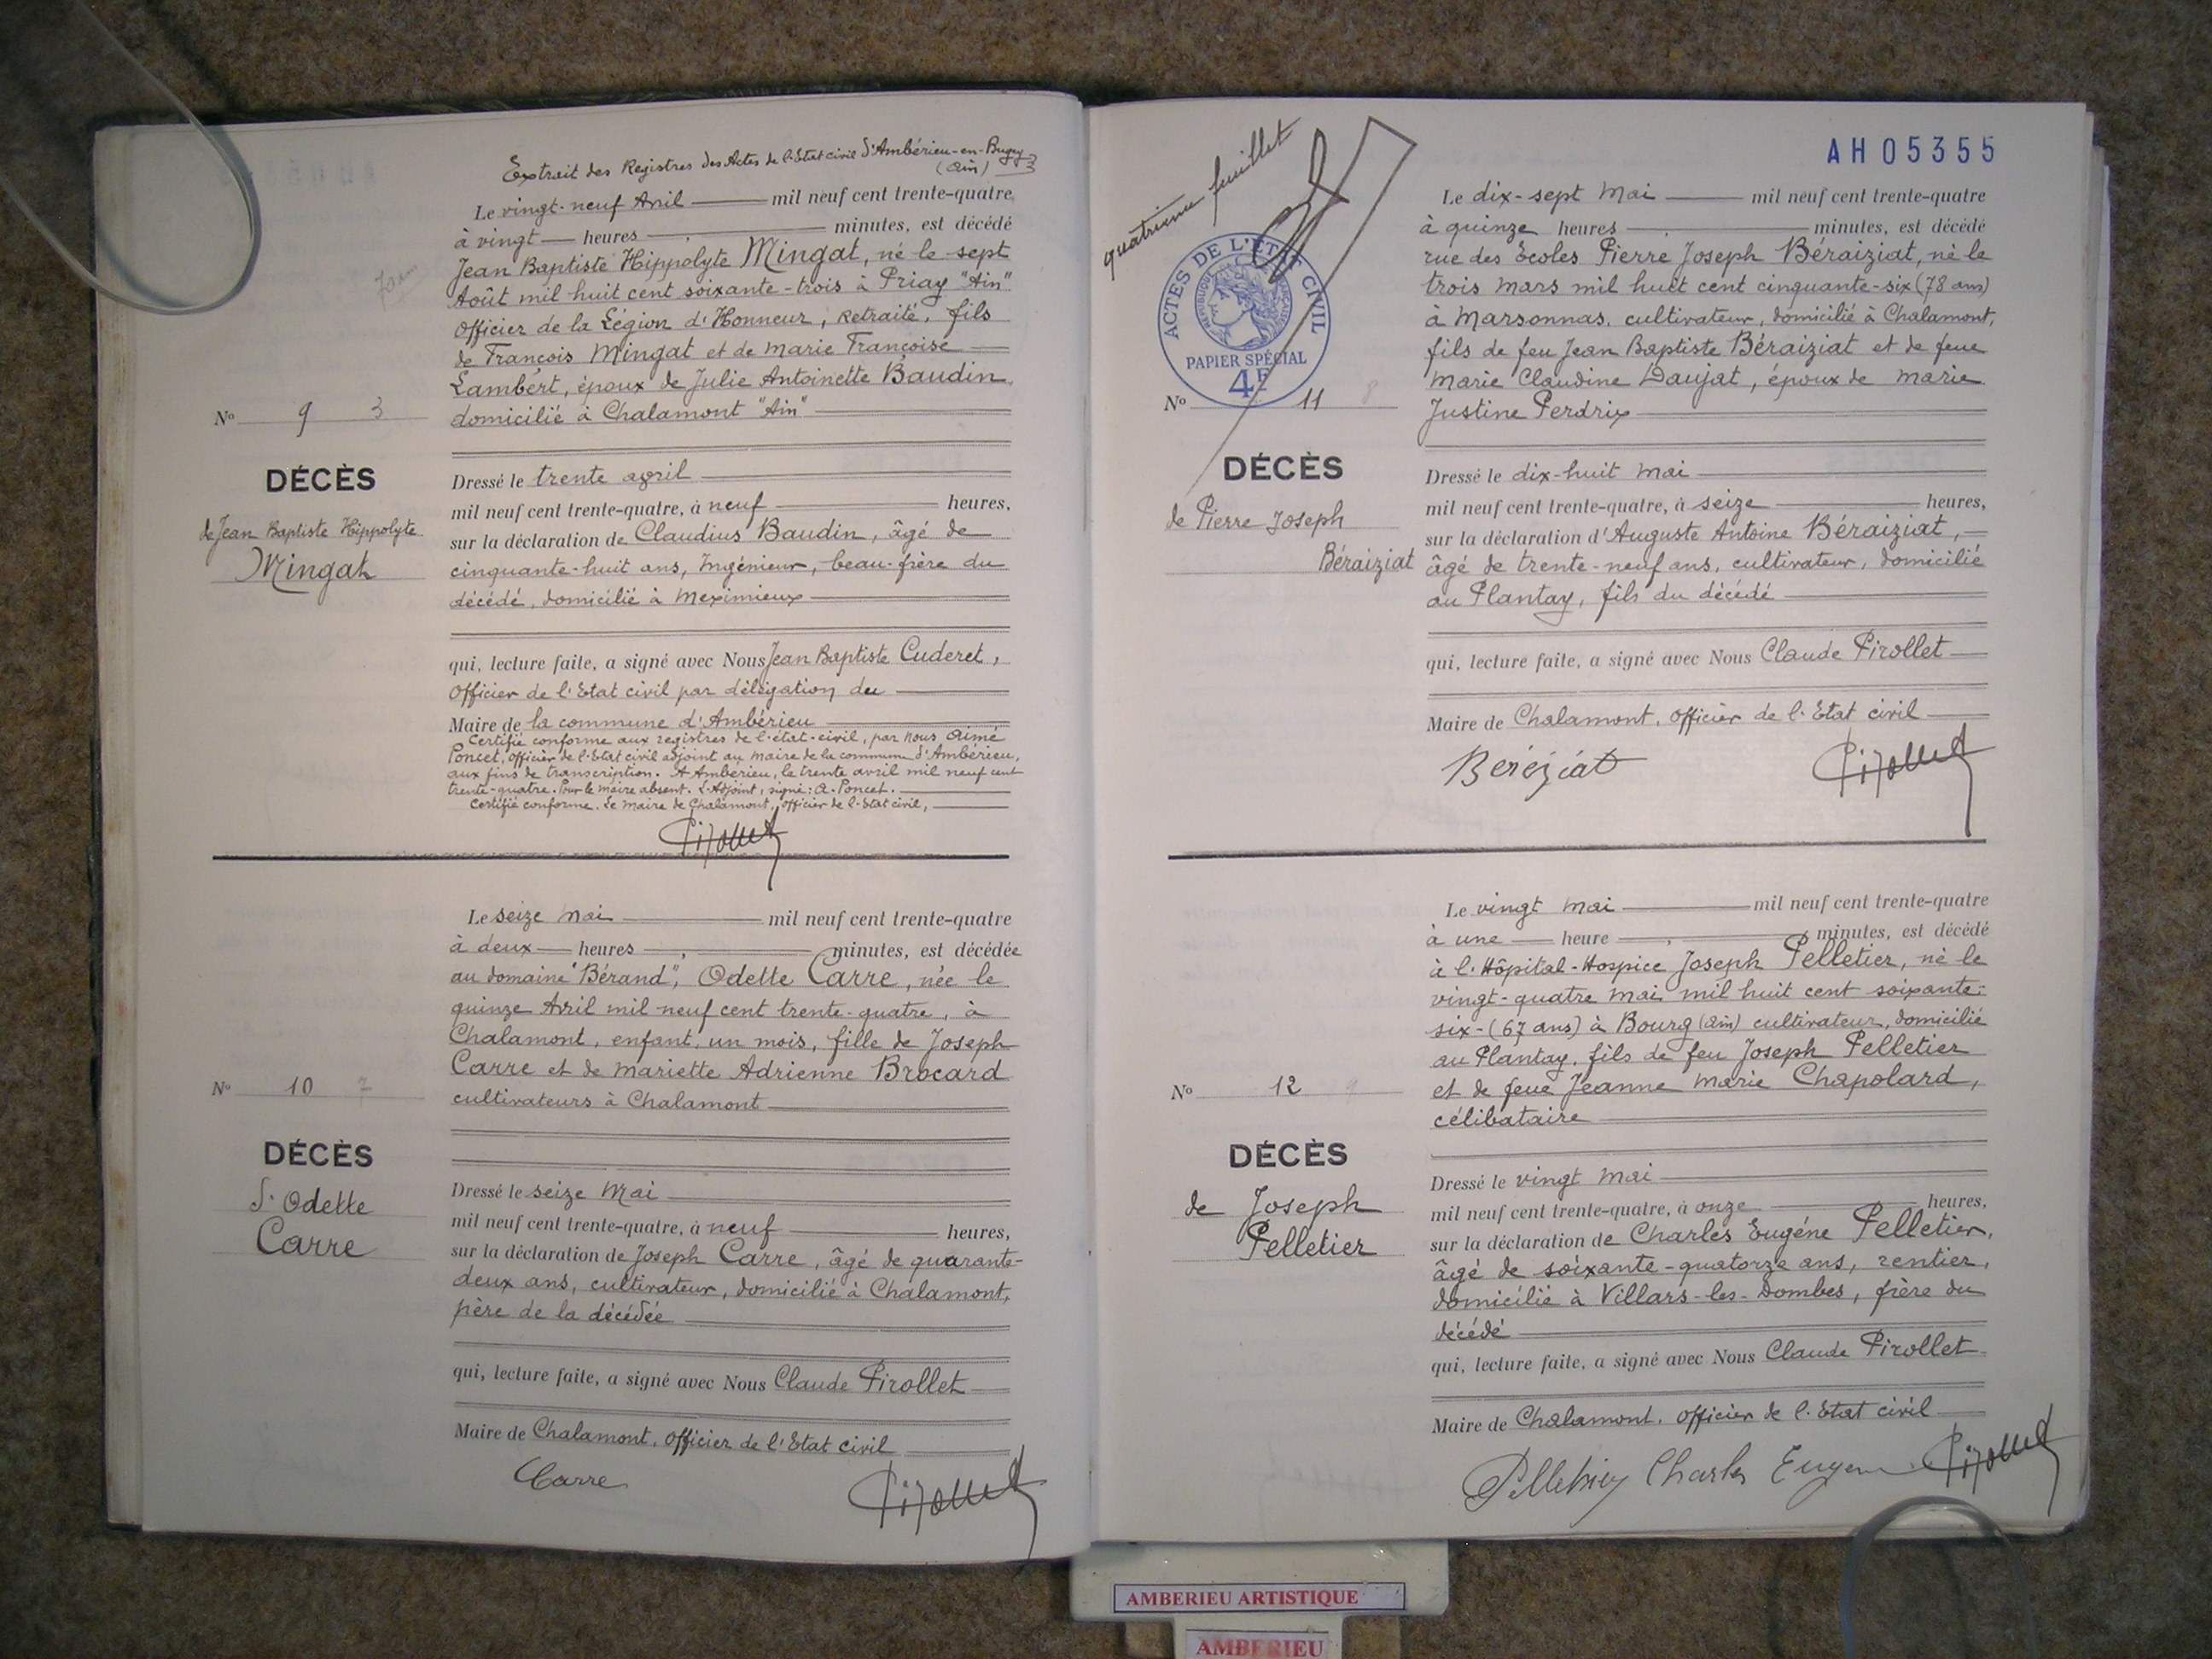 Extrait des Registres des Actes de l'Etat civil d'Ambérieu-en-Bugey
(Ain)
Le vingt-neuf Avril mil neuf cent trente-quatre
à vingt heures minutes, est décédé
Jean Baptiste Hippolyte Mingat, né le sept
Août mil huit cent soixante-trois à Priay "Ain"
Officier de la Légion d'Honneur, Retraité, fils
de François Mingat et de Marie Françoise
Lambert, époux de Julie Antoinette Baudin,
domicilié à Chalamont "Ain"
N° 9 3
DÉCÈS
de Jean Baptiste Hippolyte
Mingat
Dressé le trente avril
mil neuf cent trente-quatre, à neuf heures,
sur la déclaration de Claudius Baudin, âgé de
cinquante-huit ans, Ingénieur, beau-frère du
décédé, domicilié à Meximieux
qui, lecture faite, a signé avec Nous Jean Baptiste Cuderet,
Officier de l'Etat civil par délégation du
Maire de la commune d'Ambérieu
Certifié conforme aux registres de l'état-civil, par nous Aimé
Poncet, officier de l'Etat civil adjoint au Maire de la commune d'Ambérieu,
aux fins de transcription. A Ambérieu, le trente avril mil neuf cent
trente-quatre. Pour le maire absent. L'Adjoint, signé: A. Poncet.
Certifié conforme. Le Maire de Chalamont, officier de l'Etat civil,
Pirollet
Le seize Mai mil neuf cent trente-quatre
à deux heures minutes, est décédée
au domaine "Bérand", Odette Carre, née le
quinze Avril mil neuf cent trente-quatre, à
Chalamont, enfant, un mois, fille de Joseph
Carre et de Mariette Adrienne Brocard
cultivateurs à Chalamont
N° 10 7
DÉCÈS
d'Odette
Carre
Dressé le seize Mai
mil neuf cent trente-quatre, à neuf heures,
sur la déclaration de Joseph Carre, âgé de quarante-
deux ans, cultivateur, domicilié à Chalamont,
père de la décédée
qui, lecture faite, a signé avec Nous Claude Pirollet
Maire de Chalamont, officier de l'Etat civil
Carre Pirollet
quatrième feuillet
ACTES DE L'ÉTAT CIVIL
PAPIER SPÉCIAL
4F
AH05355
Le dix-sept Mai mil neuf cent trente-quatre
à quinze heures minutes, est décédé
rue des Ecoles Pierre Joseph Béraiziat, né le
trois Mars mil huit cent cinquante-six (78 ans)
à Marsonnas, cultivateur, domicilié à Chalamont,
fils de feu Jean Baptiste Béraiziat et de feue
Marie Claudine Daujat, époux de Marie
Justine Perdrix
N° 11 8
DÉCÈS
de Pierre Joseph
Béraiziat
Dressé le dix-huit Mai
mil neuf cent trente-quatre, à seize heures,
sur la déclaration d'Auguste Antoine Béraiziat,
âgé de trente-neuf ans, cultivateur, domicilié
au Plantay, fils du décédé
qui, lecture faite, a signé avec Nous Claude Pirollet
Maire de Chalamont, officier de l'Etat civil
Béréziat Pirollet
Le vingt Mai mil neuf cent trente-quatre
à une heure minutes, est décédé
à l'Hôpital-Hospice Joseph Pelletier, né le
vingt-quatre Mai mil huit cent soixante-
six (67 ans) à Bourg (Ain) cultivateur, domicilié
au Plantay, fils de feu Joseph Pelletier
et de feue Jeanne Marie Chapolard,
célibataire
N° 12 9
DÉCÈS
de Joseph
Pelletier
Dressé le vingt Mai
mil neuf cent trente-quatre, à onze heures,
sur la déclaration de Charles Eugéne Pelletier,
âgé de soixante-quatorze ans, rentier,
domicilié à Villars-les-Dombes, frère du
décédé
qui, lecture faite, a signé avec Nous Claude Pirollet
Maire de Chalamont, officier de l'Etat civil
Pelletier Charles Eugene Pirollet
AMBERIEU ARTISTIQUE
AMBERIEU